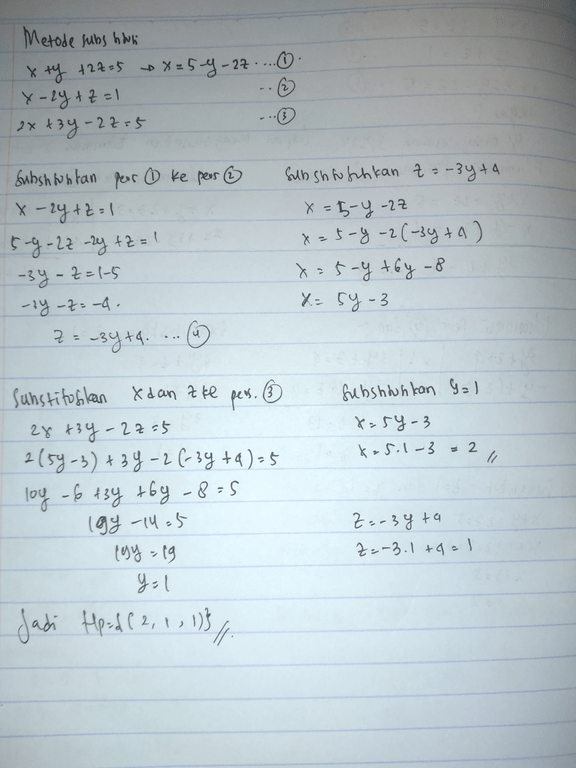 Metode substitusi
x + y + 2z = 5 → x = 5 - y - 2z ....①.
x - 2y + z = 1 ...②
2x + 3y - 2z = 5 ...③
Substitutikan pers ① ke pers ②
x - 2y + z = 1
5 - y - 2z - 2y + z = 1
-3y - z = 1 - 5
-3y - z = -4.
z = -3y + 4. ... ④
Substitutikan z = -3y + 4
x = 5 - y - 2z
x = 5 - y - 2(-3y + 4)
x = 5 - y + 6y - 8
x = 5y - 3
Substitusikan x dan z ke pers. ③
2x + 3y - 2z = 5
2(5y - 3) + 3y - 2(-3y + 4) = 5
10y - 6 + 3y + 6y - 8 = 5
19y - 14 = 5
19y = 19
y = 1
Substitutikan y = 1
x = 5y - 3
x = 5.1 - 3 = 2 //
z = -3y + 4
z = -3.1 + 4 = 1
Jadi Hp = {(2, 1, 1)} //.